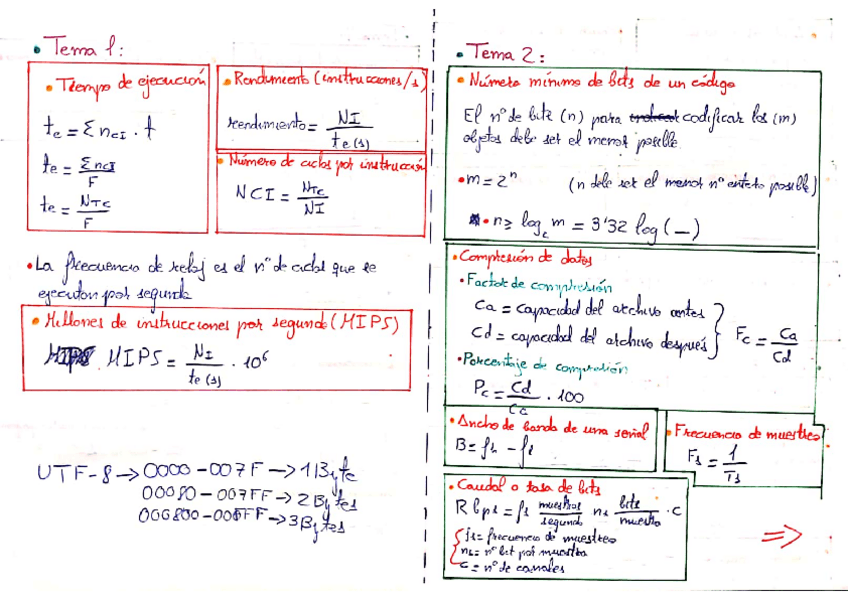 • Tema 1:
• Tiempo de ejecución
te = Σ nCI · t
te = Σ nCI / F
te = NTC / F
• Rendimiento (instrucciones/s)
rendimiento = NI / te (s)
• Número de ciclos por instrucción
NCI = NTC / NI
• La frecuencia de reloj es el nº de ciclos que se
ejecutan por segundo
• Millones de instrucciones por segundo (MIPS)
MIPS = NI / te (s) · 10⁶
UTF-8 → 0000 - 007F → 1 Byte
00080 - 007FF → 2 Bytes
→ 3 Bytes
• Tema 2:
• Número mínimo de bits de un código
El nº de bits (n) para codificar los (m)
objetos debe ser el menor posible.
• m = 2ⁿ (n debe ser el menor nº entero posible)
• n ≥ log₂ m = 3'32 log (—)
• Compresión de datos
• Factor de compresión
Ca = capacidad del archivo antes
Cd = capacidad del archivo después
Fc = Ca / Cd
• Porcentaje de compresión
Pc = Cd / Ca · 100
• Ancho de banda de una señal
B = f₂ - f₁
• Frecuencia de muestreo
Fs = 1 / Ts
• Caudal o tasa de bits
R bps = fs muestras / segundo ns bits / muestra · C
fs = frecuencia de muestreo
ns = nº bit por muestra
C = nº de canales
⇒